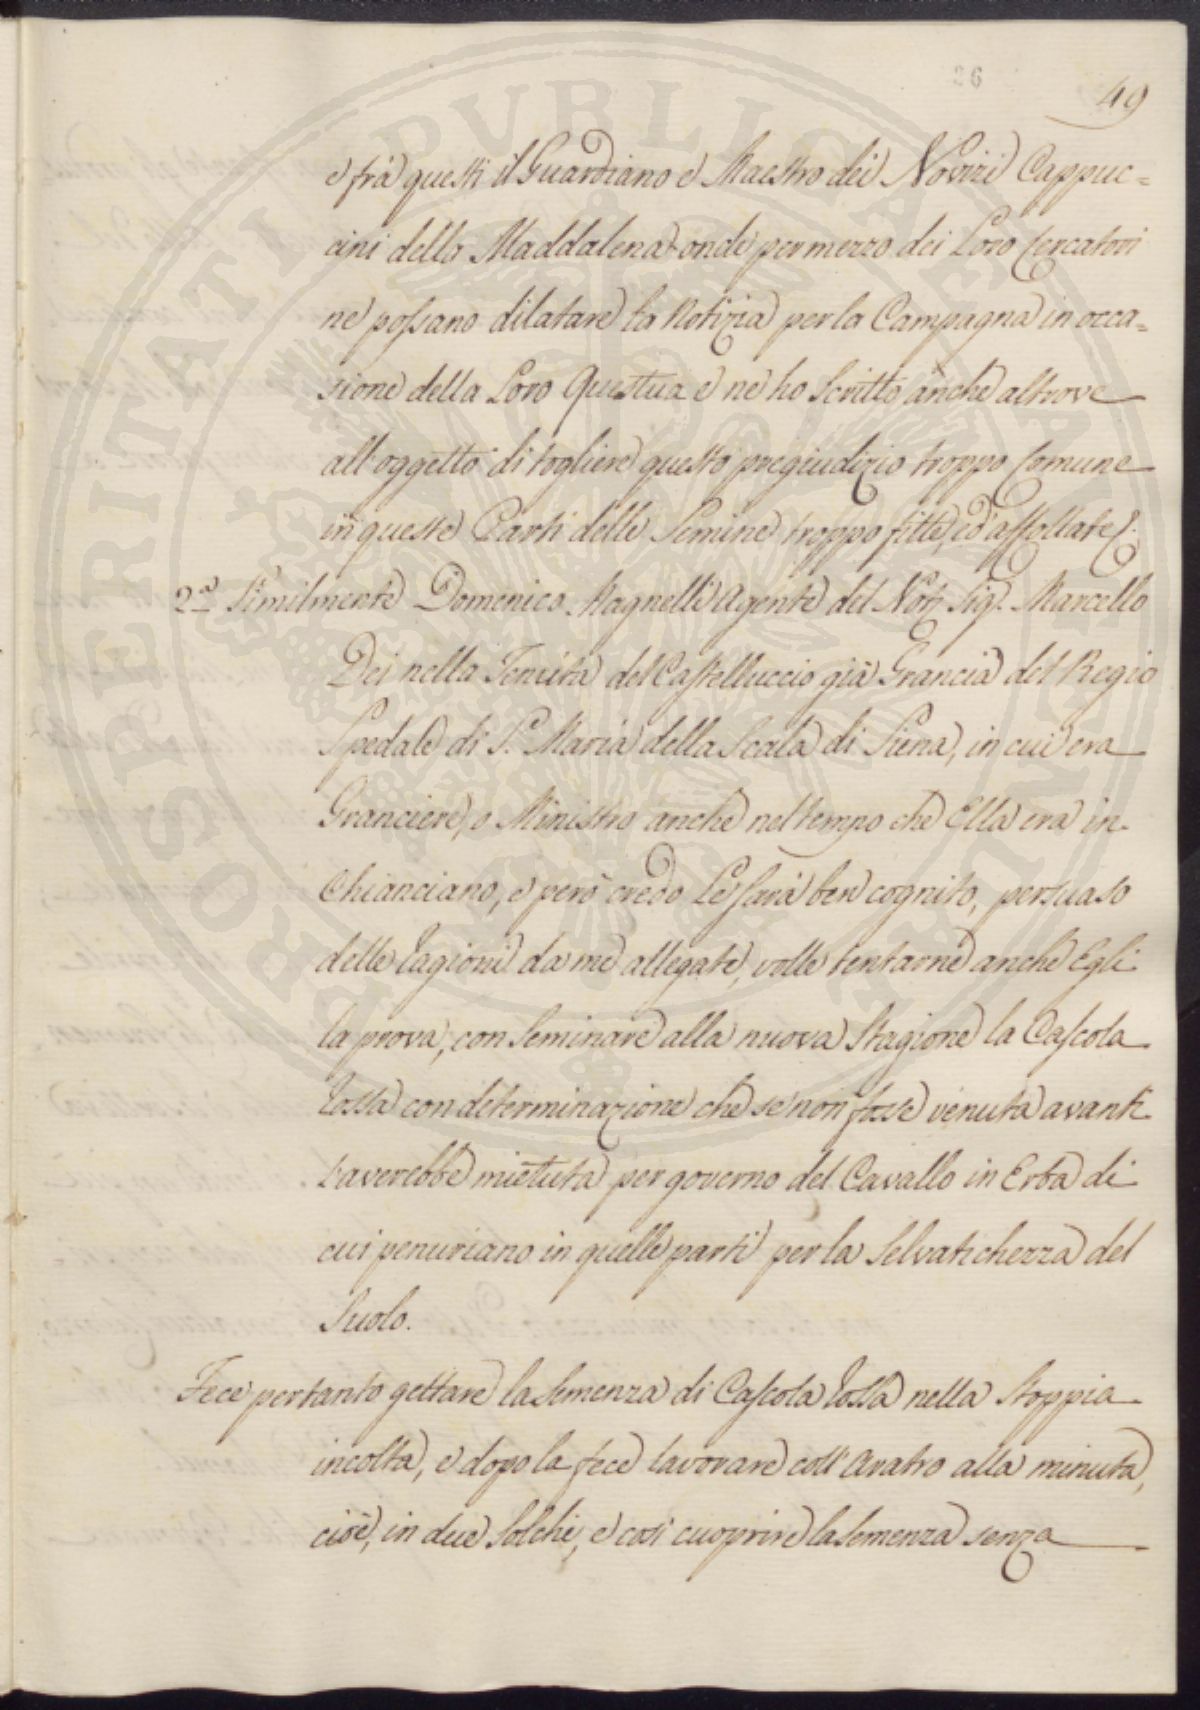 26
49
e frà questi il Guardiano e Maestro dei Novizi Cappuc=
cini della Maddalena onde per mezzo dei Loro Cercatori
ne possano dilatare la Notizia per la Campagna in occa=
sione della Loro Questua e ne ho Scritto anche altrove
all'oggetto di togliere questo pregiudizio troppo Comune
in queste Parti delle Semine troppo fitte, ed' affollate.
2.a Similmente Domenico Magnelli Agente del Nob. Sig.r Marcello
Dei nella Tenuta del Castelluccio già Grancia del Regio
Spedale di S. Maria della Scala di Siena, in cui era
Granciere, o Ministro anche nel tempo che Ella era in
Chianciano, e però credo Le sarà ben cognito, persuaso
delle ragioni da me allegate, volle tentarne anche Egli
la prova, con Seminare alla nuova Stagione la Cascola
rossa con determinazione che se non fosse venuta avanti
l'averebbe mietuta per governo del Cavallo in Erba di
cui penuriano in quelle parti per la Selvatichezza del
Suolo.
Fece pertanto gettare la Semenza di Cascola rossa nella Stoppia
incolta, e dopo la fece lavorare coll'Aratro alla minuta,
cioè, in due Solchi, e così cuoprire la Semenza senza
PROSPERITATI PUBLICAE AUGENDAE